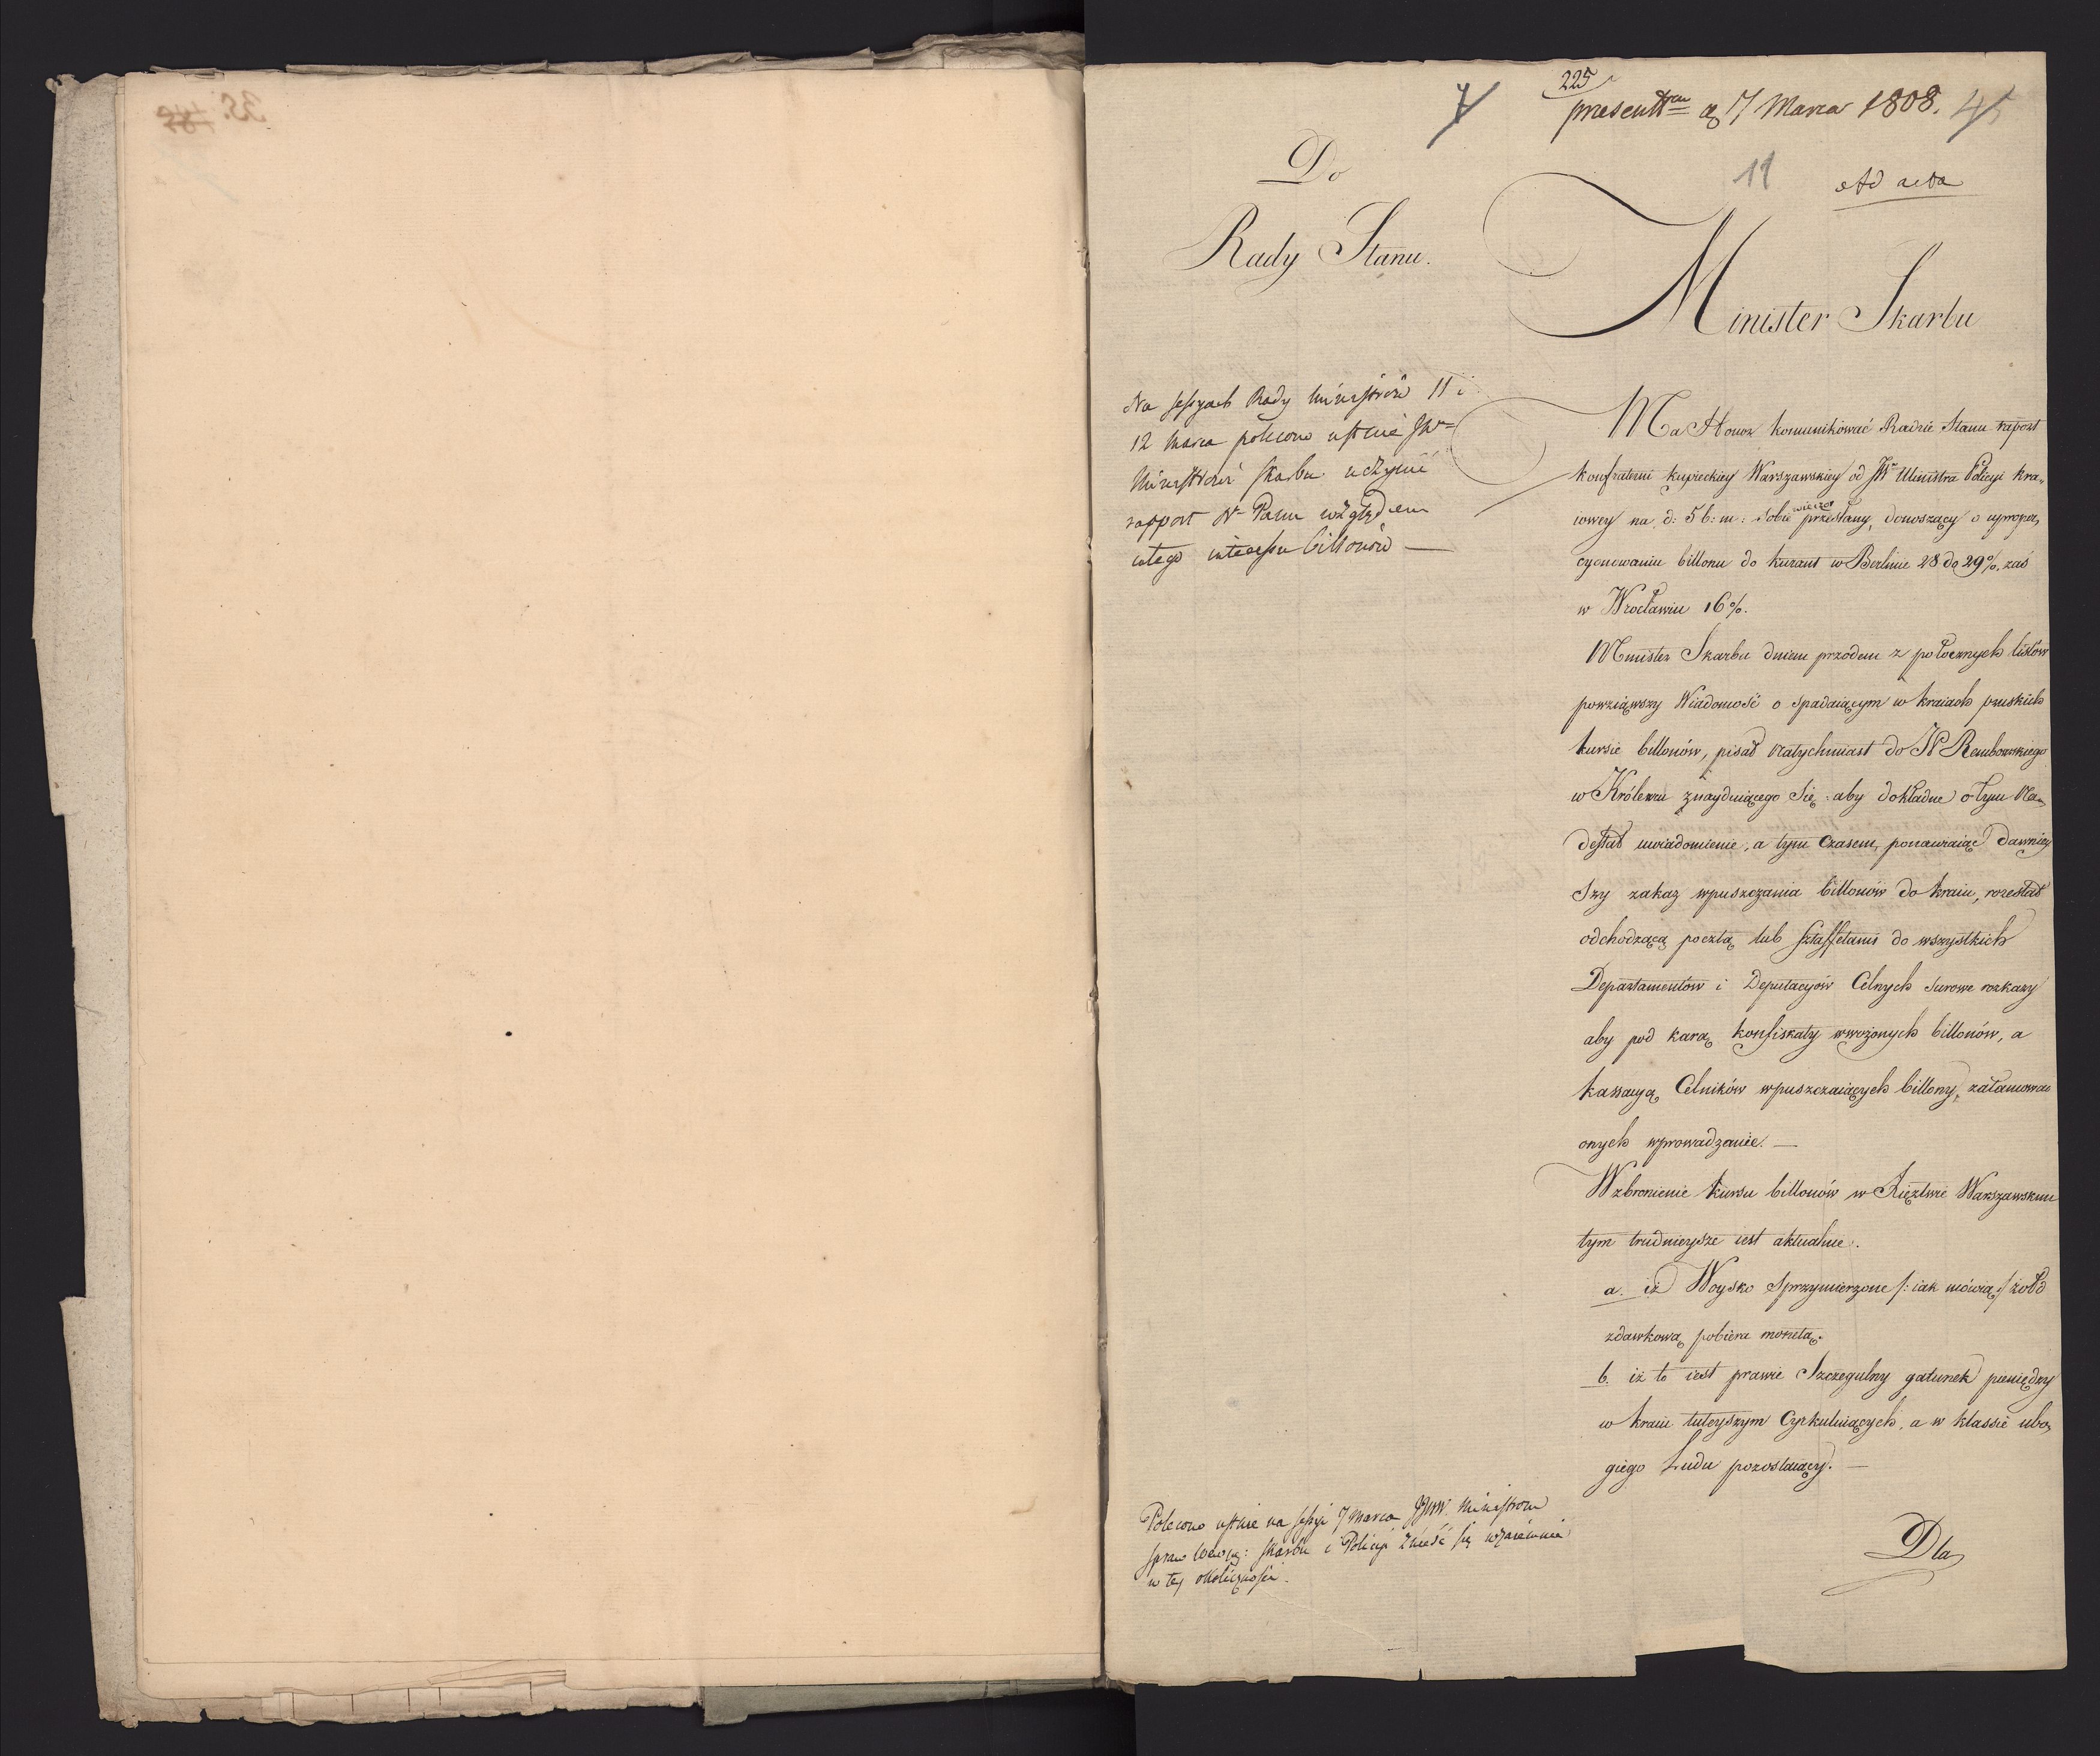 225
presentm d 7 Marca 1808. 45
7
11
Ad acta
Do
Rady Stanu.
Minister Skarbu
Na sessyach Rady Ministrów 11 i
12 Marca polecono ustnie JW
Ministrowi Skarbu uczynić
rapport N. Panu względem
całego interessu billonów —
Ma Honor komunikować Radzie Stanu raport
konfraterni kupieckiey Warszawskiey od JW Ministra Policyi kra„
iowey na d: 5 b: m: sobie wieczór przesłany, donoszący o wypropor„
cyonowaniu billonu do kurant w Berlinie 28 do 29%. zaś
w Wrocławiu 16%.
Minister Skarbu dniem przodem z potocznych listów
powziąwszy Wiadomość o spadaiącym w kraiach pruskich
kursie billonów, pisał natychmiast do JP Rembowskiego
w Królewcu znayduiącego Się: aby dokładne o tym Na„
desłał uwiadomienie, a tym Czasem, ponawiaiąc dawniey
Szy zakaz wpuszczania billonów do kraiu, rozesłał
odchodzącą pocztą lub sztaffetami do wszystkich
Departamentów i Deputacyów Celnych surowe rozkazy
aby pod karą konfiskaty wwożonych billonów, a
kassacyą Celników wpuszczaiących billony, zatamować
onych wprowadzanie. —
Wzbronienie kursu billonów w Xięztwie Warszawskim
tym trudnieysze iest aktualnie.
a. iż Woysko Sprzymierzone /: iak mówią :/ żołd
zdawkową pobiera monetą.
b. iż to iest prawie Szczegulny gatunek pieniędzy
w kraiu tuteyszym Cyrkuluiących, a w klassie ubo„
giego Ludu pozostaiący. —
Polecono ustnie na sessyi 7 Marca JJWW. Ministrom
Spraw Wewnę: Skarbu i Policyi znieść się wzaiemnie
w tey okoliczności.
Dla